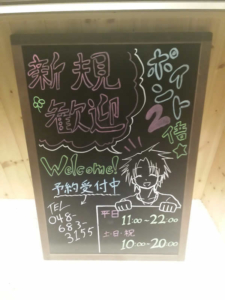 新規
歓迎
ポイント
2倍
Welcome!
予約受付中
TEL
048-
683-
3255
平日
11:00~22:00
土・日・祝
10:00~20:00